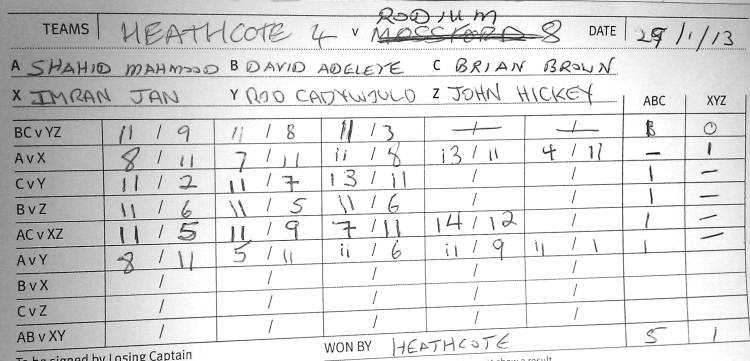 RODIUM
TEAMS HEATHCOTE 4 v MOSSFORD 8 DATE 29/1/13
A SHAHID MAHMOOD B DAVID ADELEYE C BRIAN BROWN
X IMRAN JAN Y ROD CADYWOULD Z JOHN HICKEY ABC XYZ
BC v YZ 11 / 9 11 / 8 11 / 3 / / 1 0
A v X 8 / 11 7 / 11 11 / 8 13 / 11 4 / 11 – 1
C v Y 11 / 2 11 / 7 13 / 11 / / 1 –
B v Z 11 / 6 11 / 5 11 / 6 / / 1 –
AC v XZ 11 / 5 11 / 9 7 / 11 14 / 12 / 1 –
A v Y 8 / 11 5 / 11 11 / 6 11 / 9 11 / 1 1
B v X / / / / /
C v Z / / / / /
AB v XY / / / / /
To be signed by Losing Captain WON BY HEATHCOTE 5 1